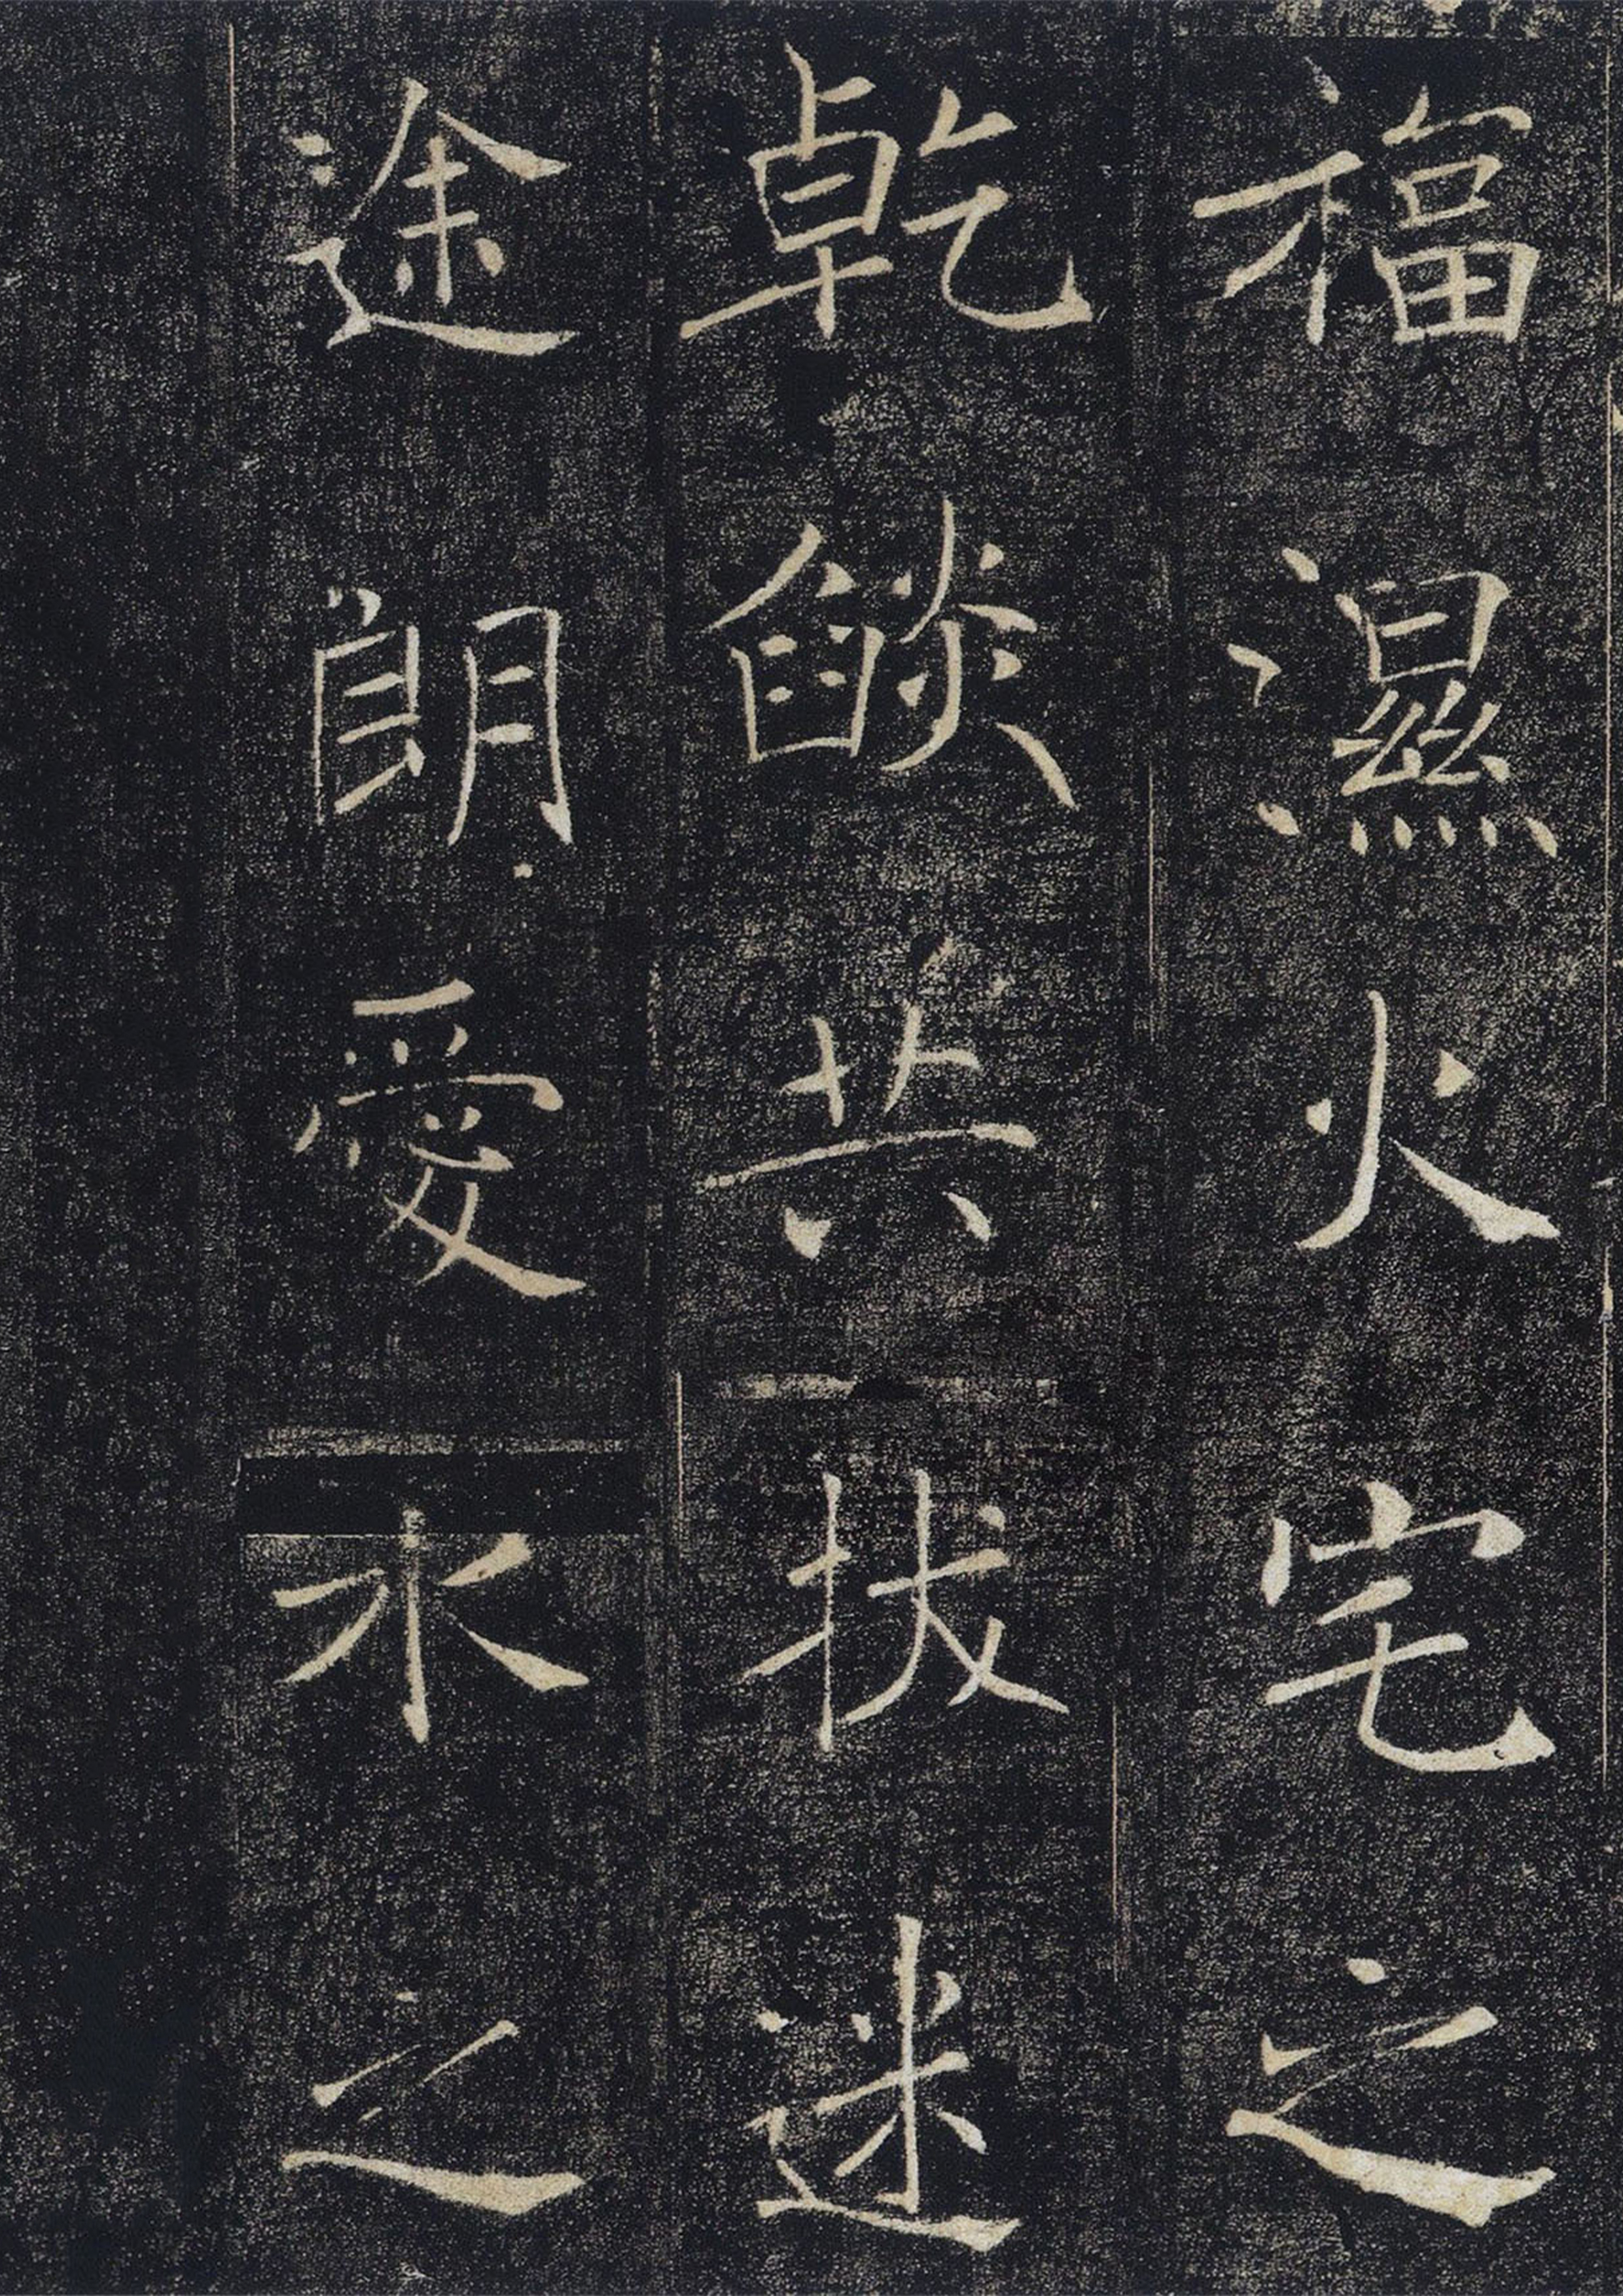 福濕火宅之
乾燄共拔迷
途朗愛水之